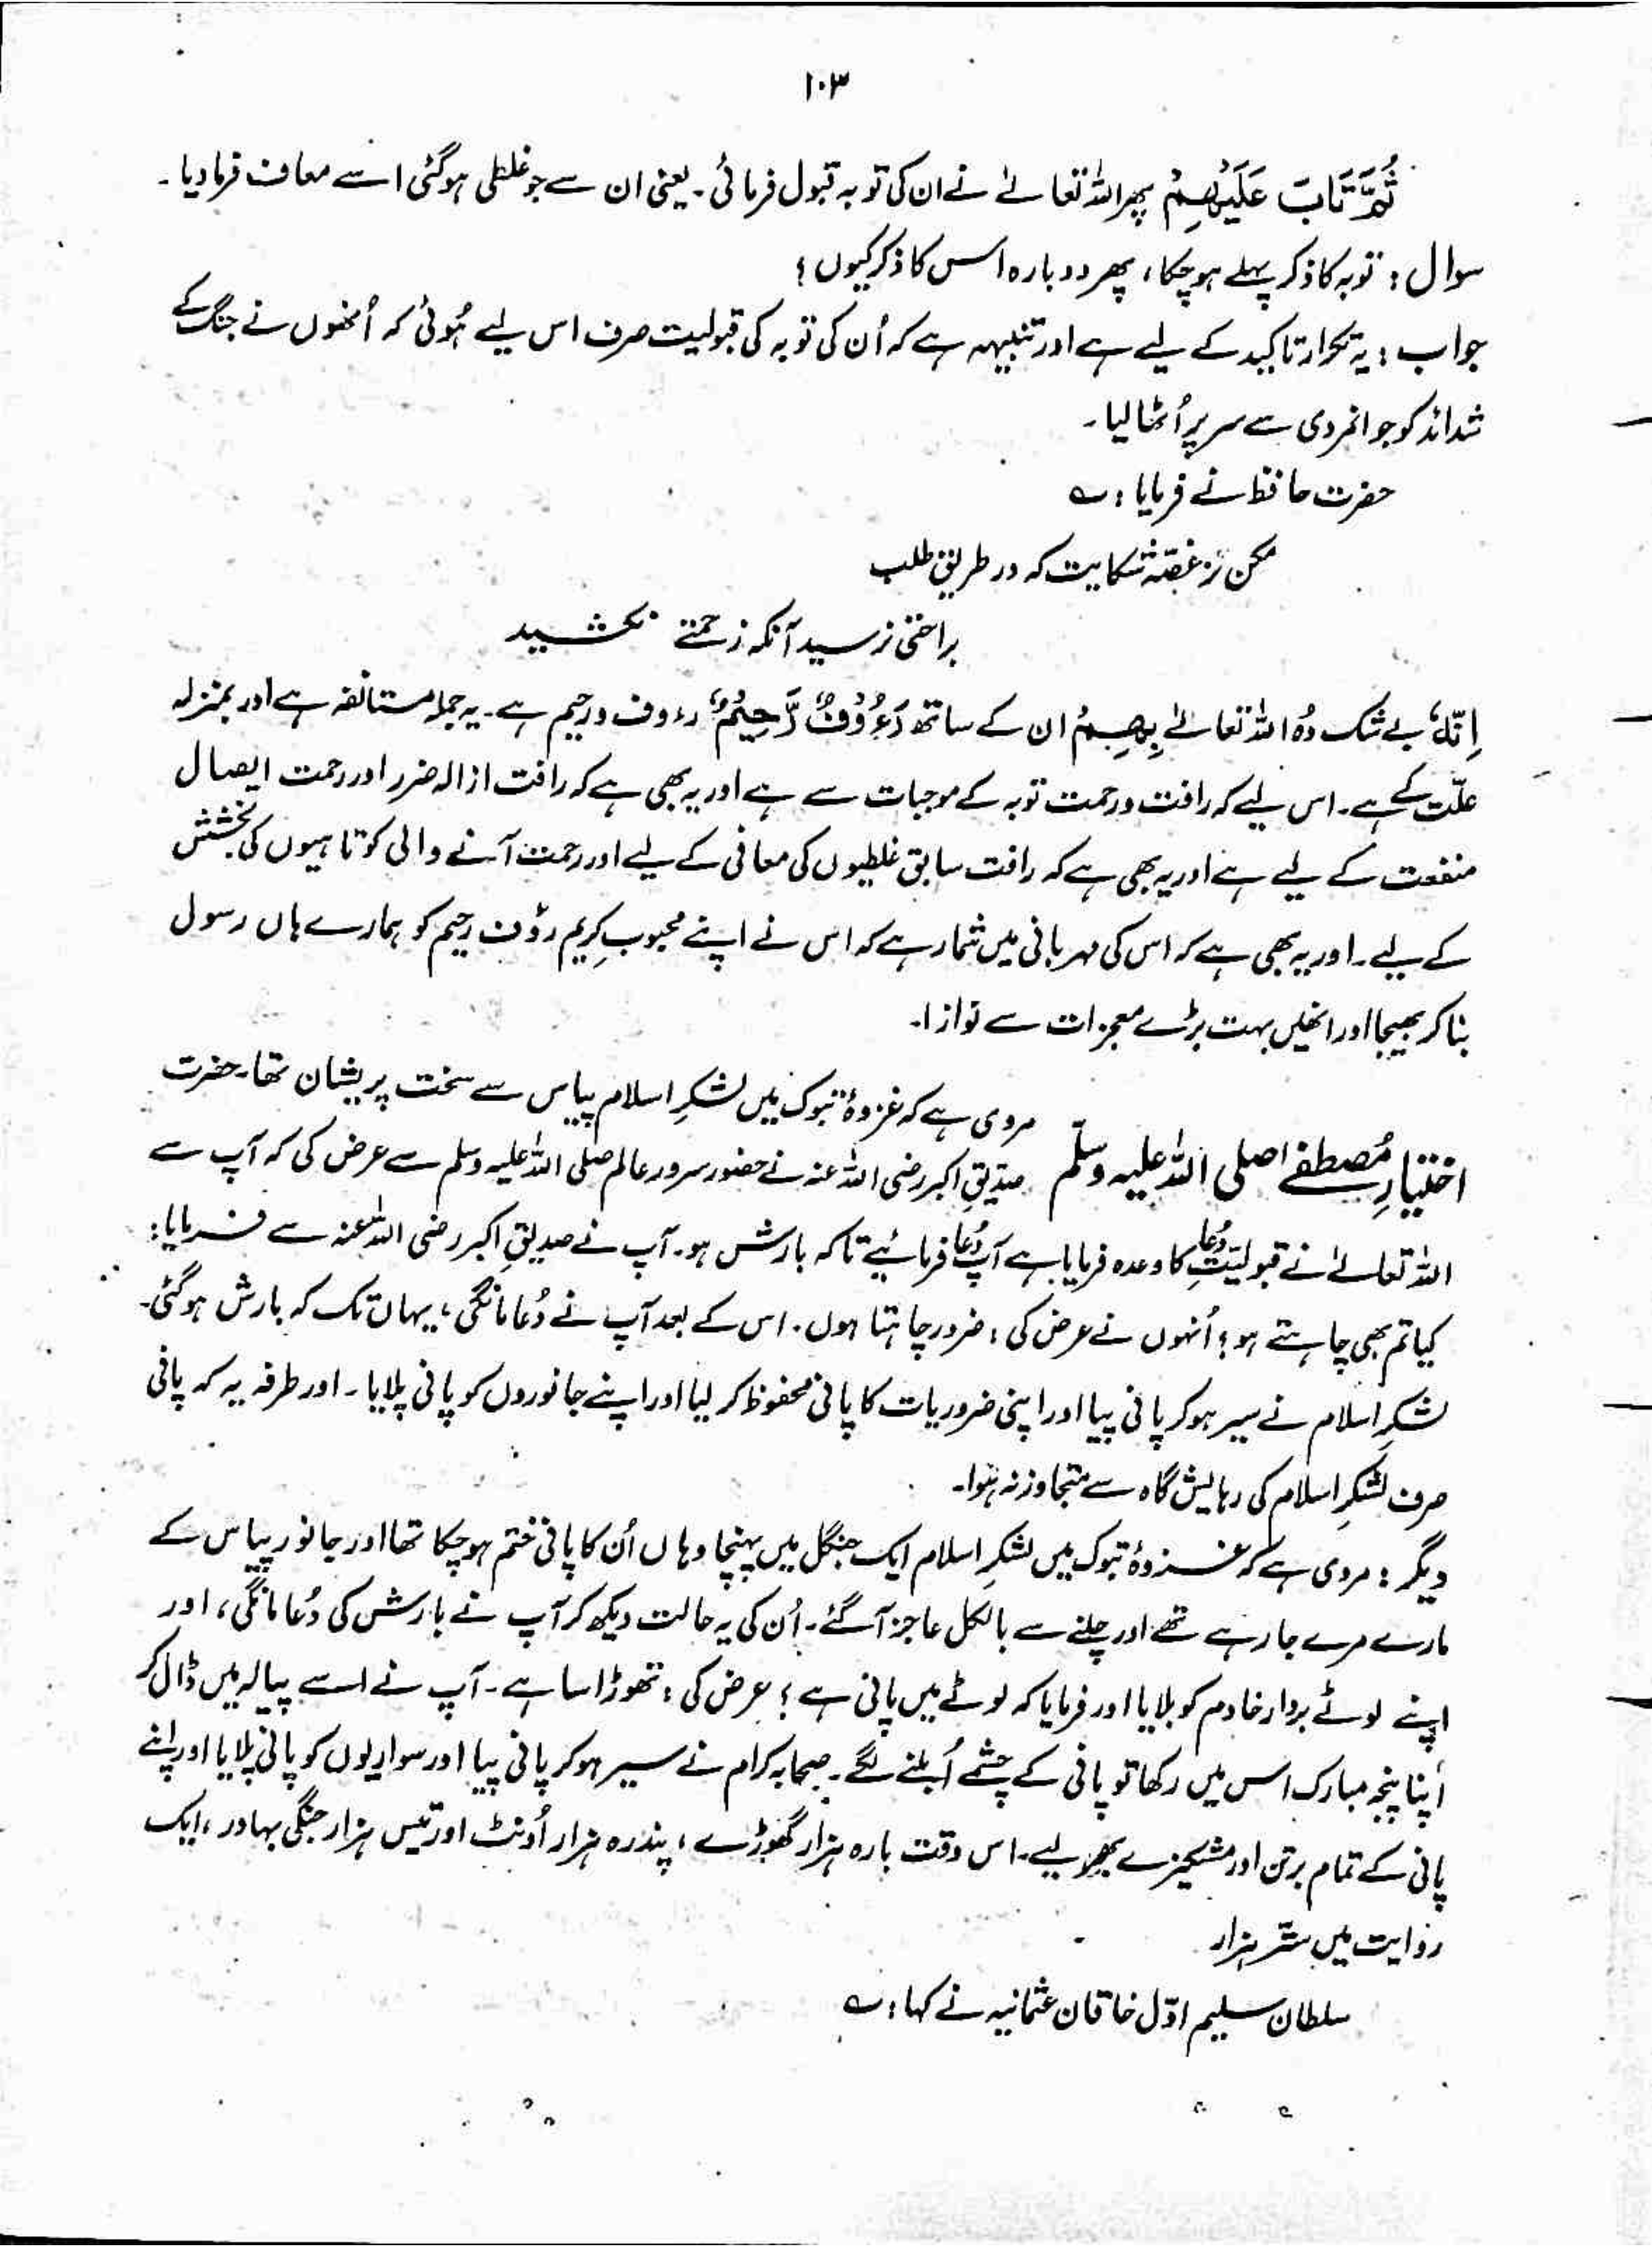 ۱۰۳
ثُمَّ تَابَ عَلَيْهِمْ پھر اللہ تعالےٰ نے ان کی توبہ قبول فرمائی۔ یعنی ان سے جو غلطی ہوگئی اسے معاف فرمادیا۔
سوال : توبہ کا ذکر پہلے ہوچکا ، پھر دوبارہ اس کا ذکر کیوں ؟
جواب : یہ تکرار تاکید کے لیے ہے اور تنبیہہ ہے کہ اُن کی توبہ کی قبولیت صرف اس لیے ہُوئی کہ اُنھوں نے جنگ کے
شدائد کو جوانمردی سے سر پر اُٹھا لیا۔
حضرت حافظ نے فرمایا : ؎
مکن ز غصّہ شکایت کہ در طریق طلب
براحتی نرسید آنکہ زحمتے نکشید
اِنَّہٗ بے شک وُہ اللہ تعالےٰ بِهِمْ ان کے ساتھ رَءُوْفٌ رَّحِيْمٌ رءوف ورحیم ہے۔ یہ جملہ مستانفہ ہے اور بمنزلہ
علّت کے ہے۔ اس لیے کہ رافت ورحمت توبہ کے موجبات سے ہے اور یہ بھی ہے کہ رافت ازالہ ضرر اور رحمت ایصال
منفعت کے لیے ہے اور یہ بھی ہے کہ رافت سابق غلطیوں کی معافی کے لیے اور رحمت آنے والی کوتاہیوں کی بخشش
کے لیے۔ اور یہ بھی ہے کہ اس کی مہربانی میں شمار ہے کہ اس نے اپنے محبوبِ کریم رؤف رحیم کو ہمارے ہاں رسول
بنا کر بھیجا اور انھیں بہت بڑے معجزات سے نوازا۔
مروی ہے کہ غزوۂ تبوک میں لشکرِ اسلام پیاس سے سخت پریشان تھا۔ حضرت
اختیارِ مُصطفےٰ صلی اللہ علیہ وسلّم صدیقِ اکبر رضی اللہ عنہ نے حضور سرور عالم صلی اللہ علیہ وسلم سے عرض کی کہ آپ سے
اللہ تعالےٰ نے قبولیّتِ دُعا کا وعدہ فرمایا ہے آپ دُعا فرمائیے تاکہ بارش ہو۔ آپ نے صدیقِ اکبر رضی اللہ عنہ سے فرمایا :
کیا تم بھی چاہتے ہو ؟ اُنہوں نے عرض کی : ضرور چاہتا ہوں۔ اس کے بعد آپ نے دُعا مانگی ، یہاں تک کہ بارش ہوگئی۔
لشکرِ اسلام نے سیر ہو کر پانی پیا اور اپنی ضروریات کا پانی محفوظ کرلیا اور اپنے جانوروں کو پانی پلایا۔ اور طرفہ یہ کہ پانی
صرف لشکرِ اسلام کی رہایش گاہ سے متجاوز نہ ہُوا۔
دیگر : مروی ہے کہ غزوۂ تبوک میں لشکرِ اسلام ایک جنگل میں پہنچا وہاں اُن کا پانی ختم ہوچکا تھا اور جانور پیاس کے
مارے مرے جارہے تھے اور چلنے سے بالکل عاجز آگئے۔ اُن کی یہ حالت دیکھ کر آپ نے بارش کی دُعا مانگی ، اور
اپنے لوٹے بردار خادم کو بلایا اور فرمایا کہ لوٹے میں پانی ہے ؟ عرض کی : تھوڑا سا ہے۔ آپ نے اسے پیالہ میں ڈال کر
اپنا پنجہ مبارک اس میں رکھا تو پانی کے چشمے اُبلنے لگے۔ صحابہ کرام نے سیر ہو کر پانی پیا اور سواریوں کو پانی پلایا اور اپنے
پانی کے تمام برتن اور مشکیزے بھر لیے۔ اس وقت بارہ ہزار گھوڑے ، پندرہ ہزار اُونٹ اور تیس ہزار جنگی بہادر ، ایک
روایت میں ستّر ہزار
سلطان سلیم اوّل خاقان عثمانیہ نے کہا : ؎